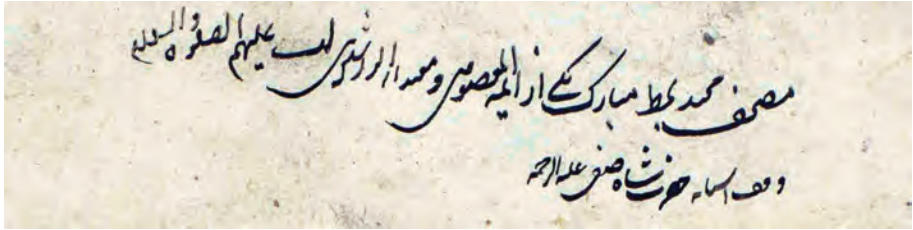 مصحف مجید بخط مبارک یکی از ائمه المعصومین و علیهم الصلوة والسلام
وقف آستانه حضرت شاه صفی علیه الرحمه